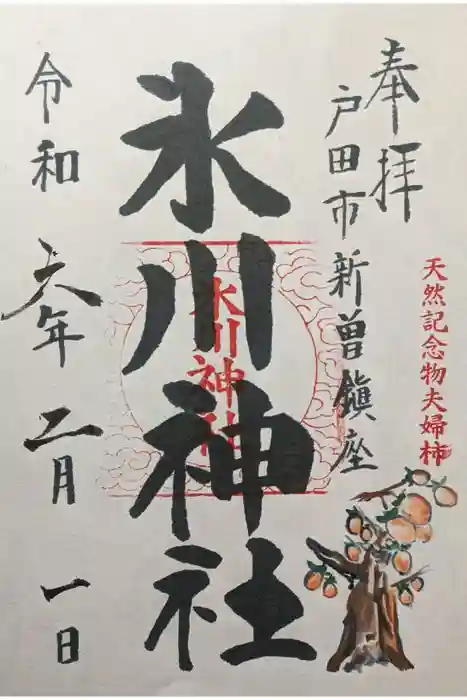 奉拝
戸田市新曽鎮座
天然記念物夫婦柿
氷川神社
氷川神社
令和六年二月一日